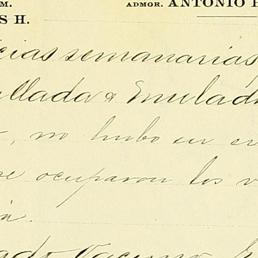 M. ADMOR. ANTONIO
S H.
cias semanarias
llada & Emulad
no hubo en
se ocuparon los v
n.
ado Vacuno